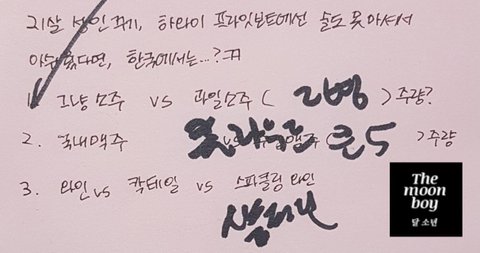 21살 성인 꾸기, 하와이 프라잇보트에선 술도 못 마셔서
아쉬웠다면, 한국에서는...? ㅠ
1. 그냥 소주 vs 과일소주 ( 2병 ) 주량?
2. 국내맥주 vs 맥주 ( 큰 5 ) 주량
3. 와인 vs 칵테일 vs 스파클링 와인
The
moon
boy
달 소년